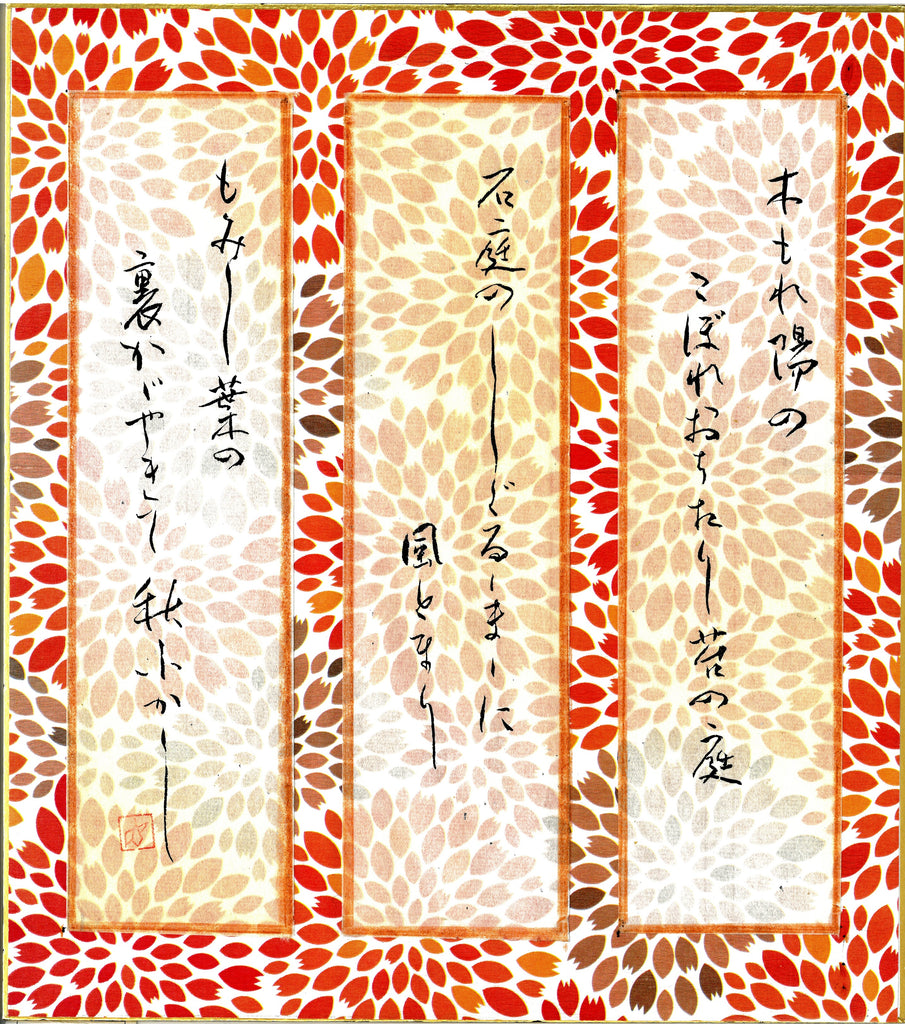 木もれ陽の
こぼれおちたり苔の庭
石庭のしぐるゝまゝに
風とまり
もみじ葉の
裏かゞやきて秋ふかし